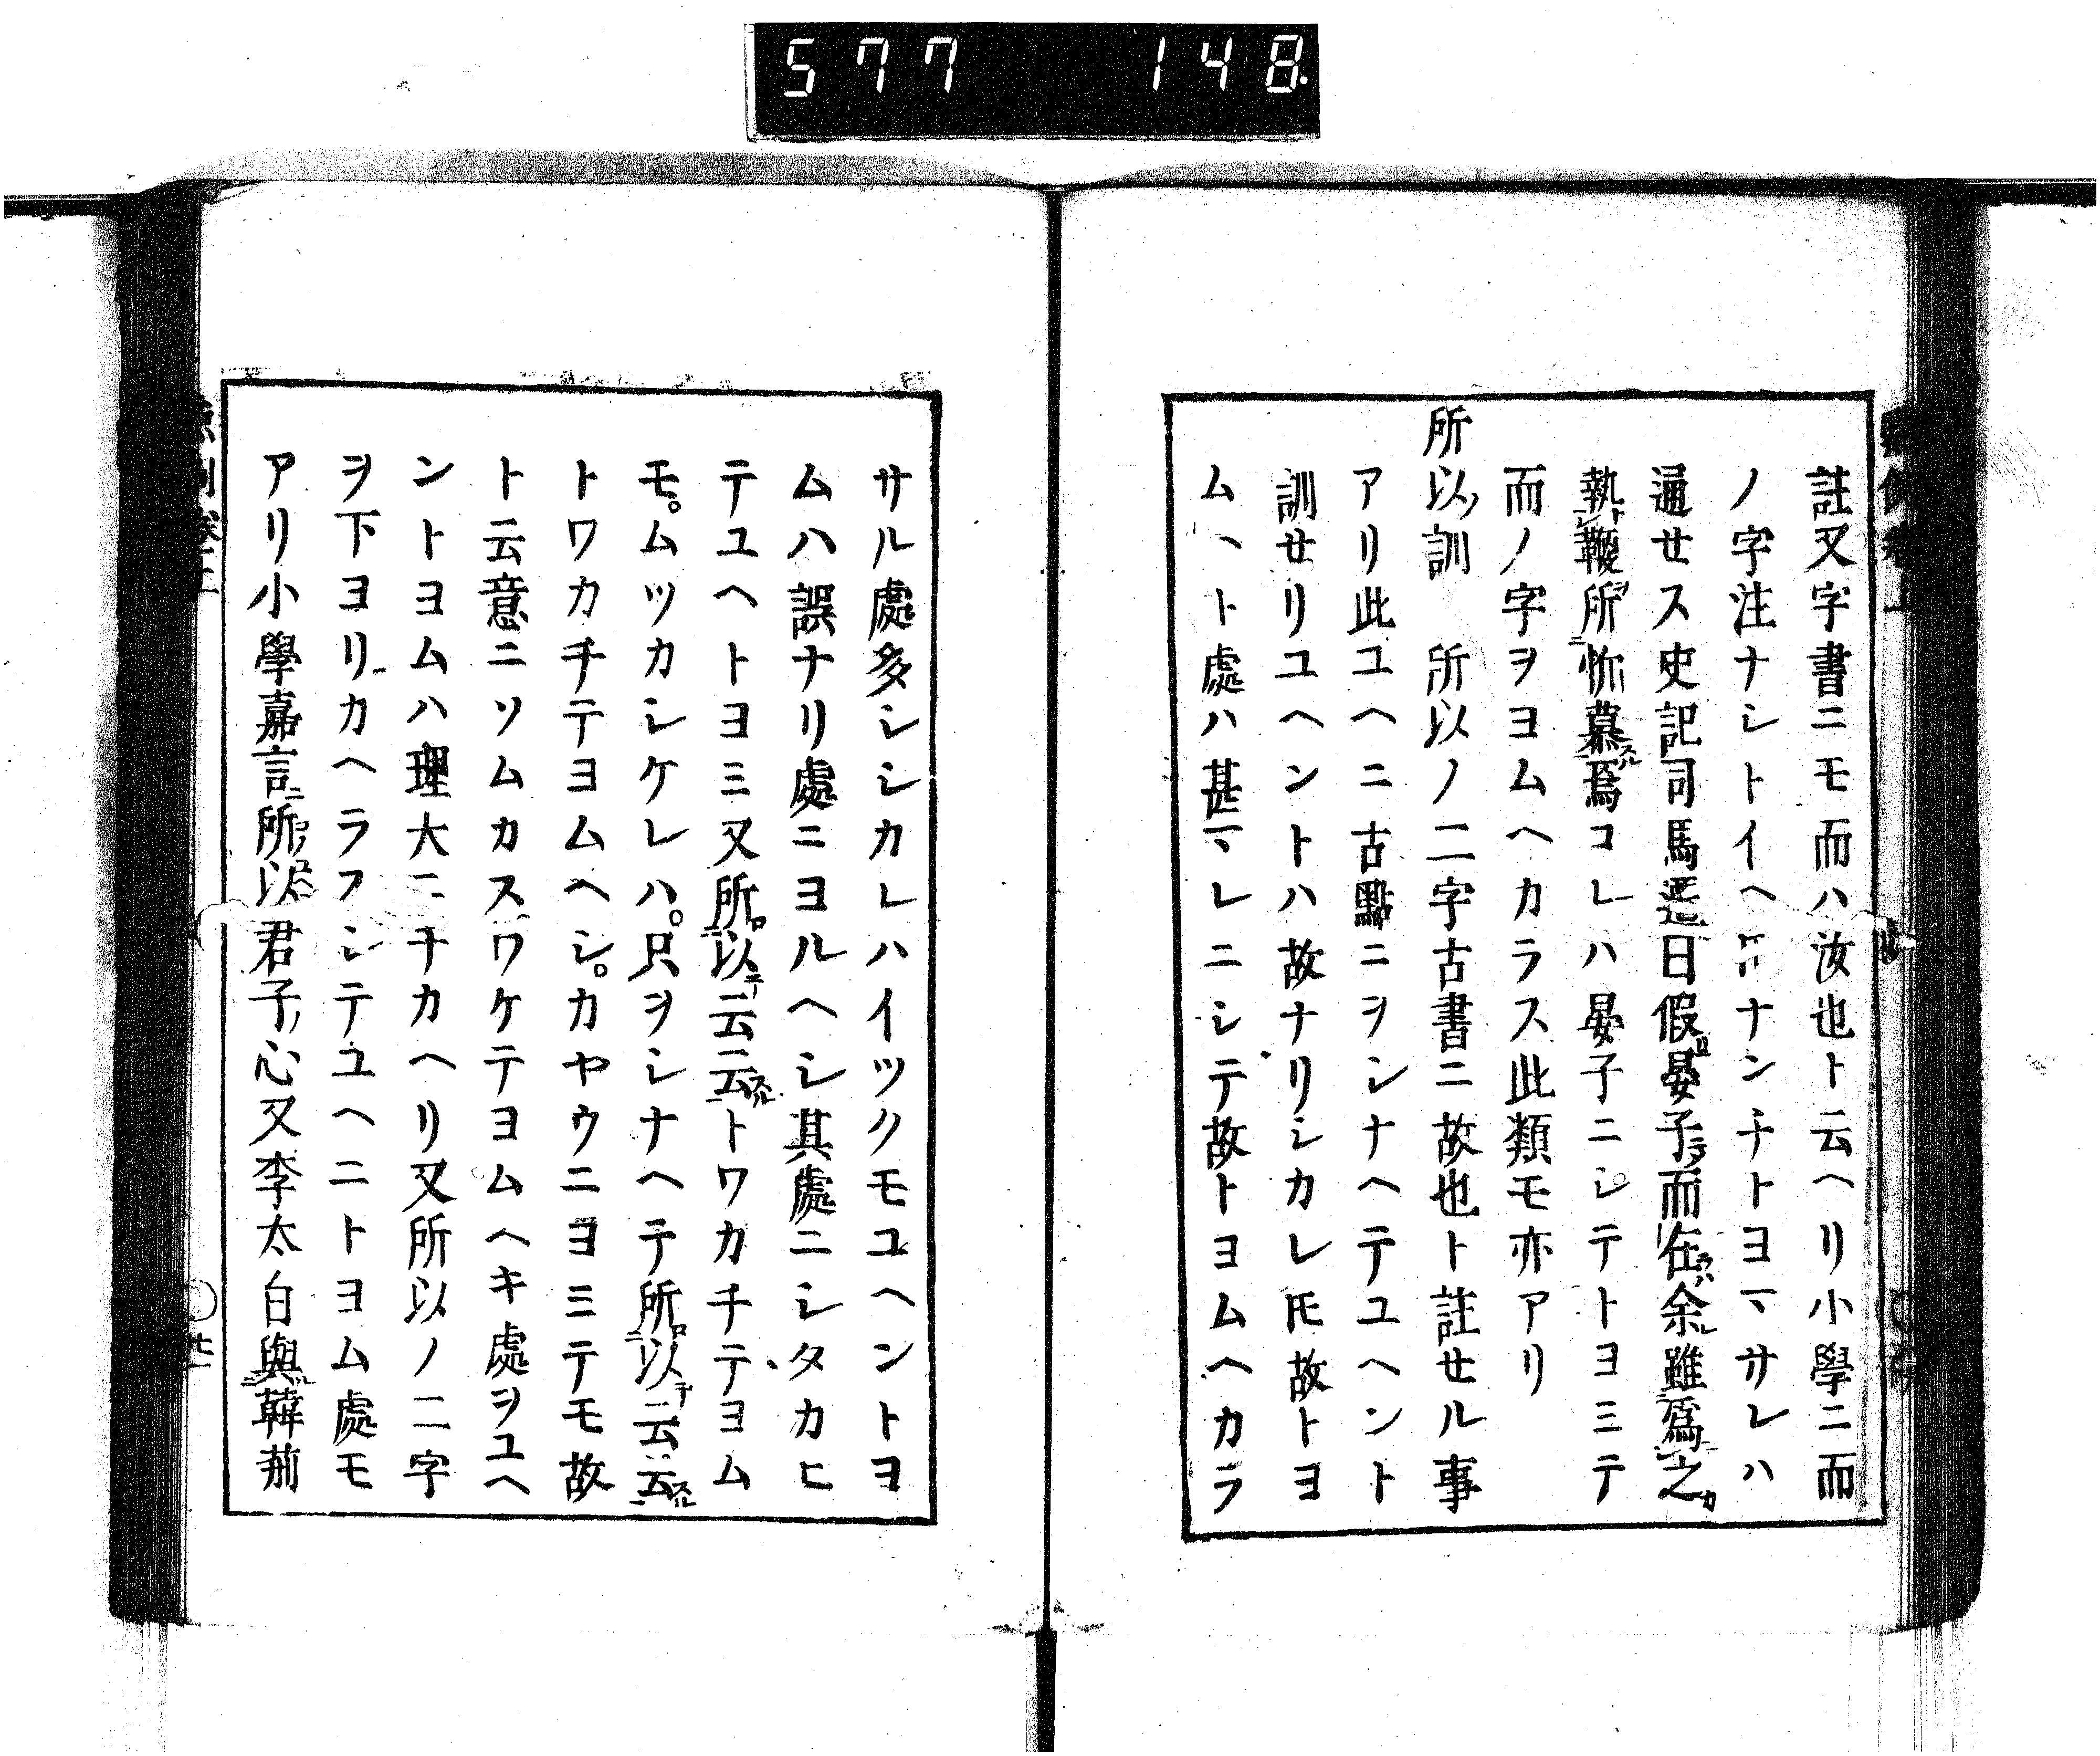 577 148
註又字書ニモ而ハ汝也ト云ヘリ小學ニ而
ノ字注ナシトイヘ𪜈ナンチトヨマサレハ
通セス史記司馬遷曰假晏子而在余雖爲之
執鞭所忻慕焉コレハ晏子ニシテトヨミテ
而ノ字ヲヨムヘカラス此類モ亦アリ
所以ノ訓 所以ノ二字古書ニ故也ト註セル事
アリ此ユヘニ古點ニヲシナヘテユヘント
訓セリユヘントハ故ナリシカレ𪜈故トヨ
ムヽト處ハ甚マレニシテ故トヨムヘカラ
サル處多シシカレハイツクモユヘントヨ
ムハ誤ナリ處ニヨルヘシ其處ニシタカヒ
テユヘトヨミ又所以云云トワカチテヨム
モ。ムツカシケレハ。只ヲシナヘテ所以云云
トワカチテヨムヘシ。カヤウニヨミテモ故
ト云意ニソムカスワケテヨムヘキ處ヲユヘ
ントヨムハ理大ニチカヘリ又所以ノ二字
ヲ下ヨリカヘラスシテユヘニトヨム處モ
アリ小學嘉言所以君子ノ心又李太白與韓荊